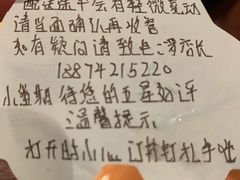 配送途中会有轻微晃动
请当面确认再收餐
如有疑问请致电：店长
18874215220
小店期待您的五星好评
温馨提示
打开时小心订书钉扎手哦